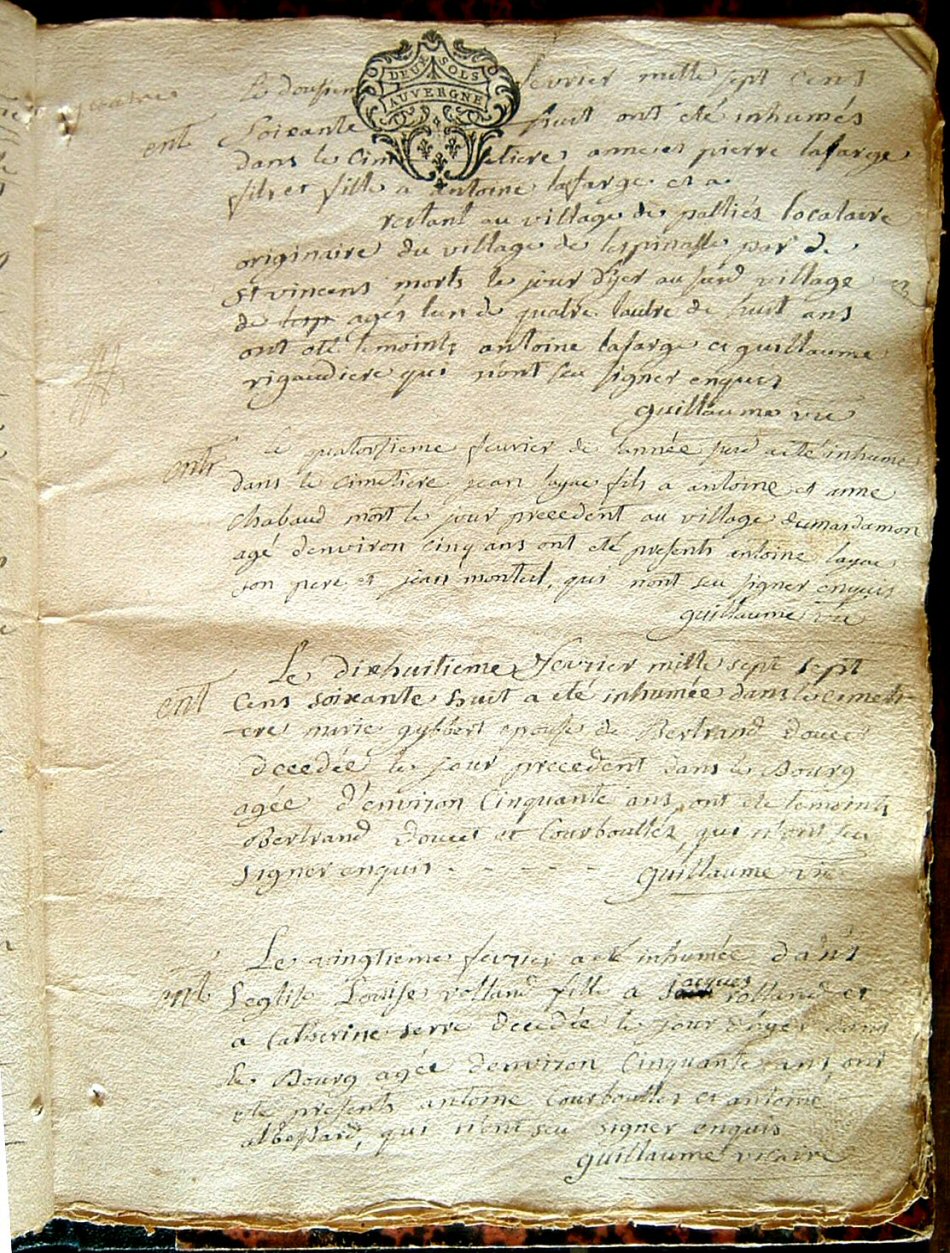 DEUX SOLS
AUVERGNE
quatre Le dousiem fevrier mille sept cens
ent Soixante huit ont été inhumés
dans le cim etiere anne et pierre lafarge
fils et fille a antoine lafarge et a
restant au village de palliés locataire
originaire du village de lespinasse par de
St vincens morts le jour dhjer au surd village
de agés lun de quatre lautre de huit ans
ont été temoints antoine lafarge et guillaume
rigaudiere qui nont seu signer enquis
guillaume vic
ent le quatorsieme fevrier de lannée surd a été inhumé
dans le cimetiere jean layac fils a antoine et anne
Chabaud mort le jour precedent au village dumardamon
agé denviron cinq ans ont eté presents antoine layac
son pere et jean monteil, qui nont seu signer enquis
guillaume vic
Le dixhuitieme fevrier mille sept sept
ent Cens soixante huit a été inhumée dans le cimeti
ere marie gylbert epouse de Bertrand Doucet
decedée le jour precedent dans le Bourg
agée d'environ Cinquante ans, ont eté temoints
Bertrand Doucet et Courboulles, qui n'ont seu
signer enquis - - - - - - guillaume vic
Le vingtieme fevrier a été inhumée dans
ent leglise Louise rolland fille a jacques rolland et
a Catherine serre decedée le jour dhyer dans
le Bourg agée denviron Cinquante ans, ont
eté presents antoine Courboulles et antoine
albessard, qui nont seu signer enquis
guillaume vicaire